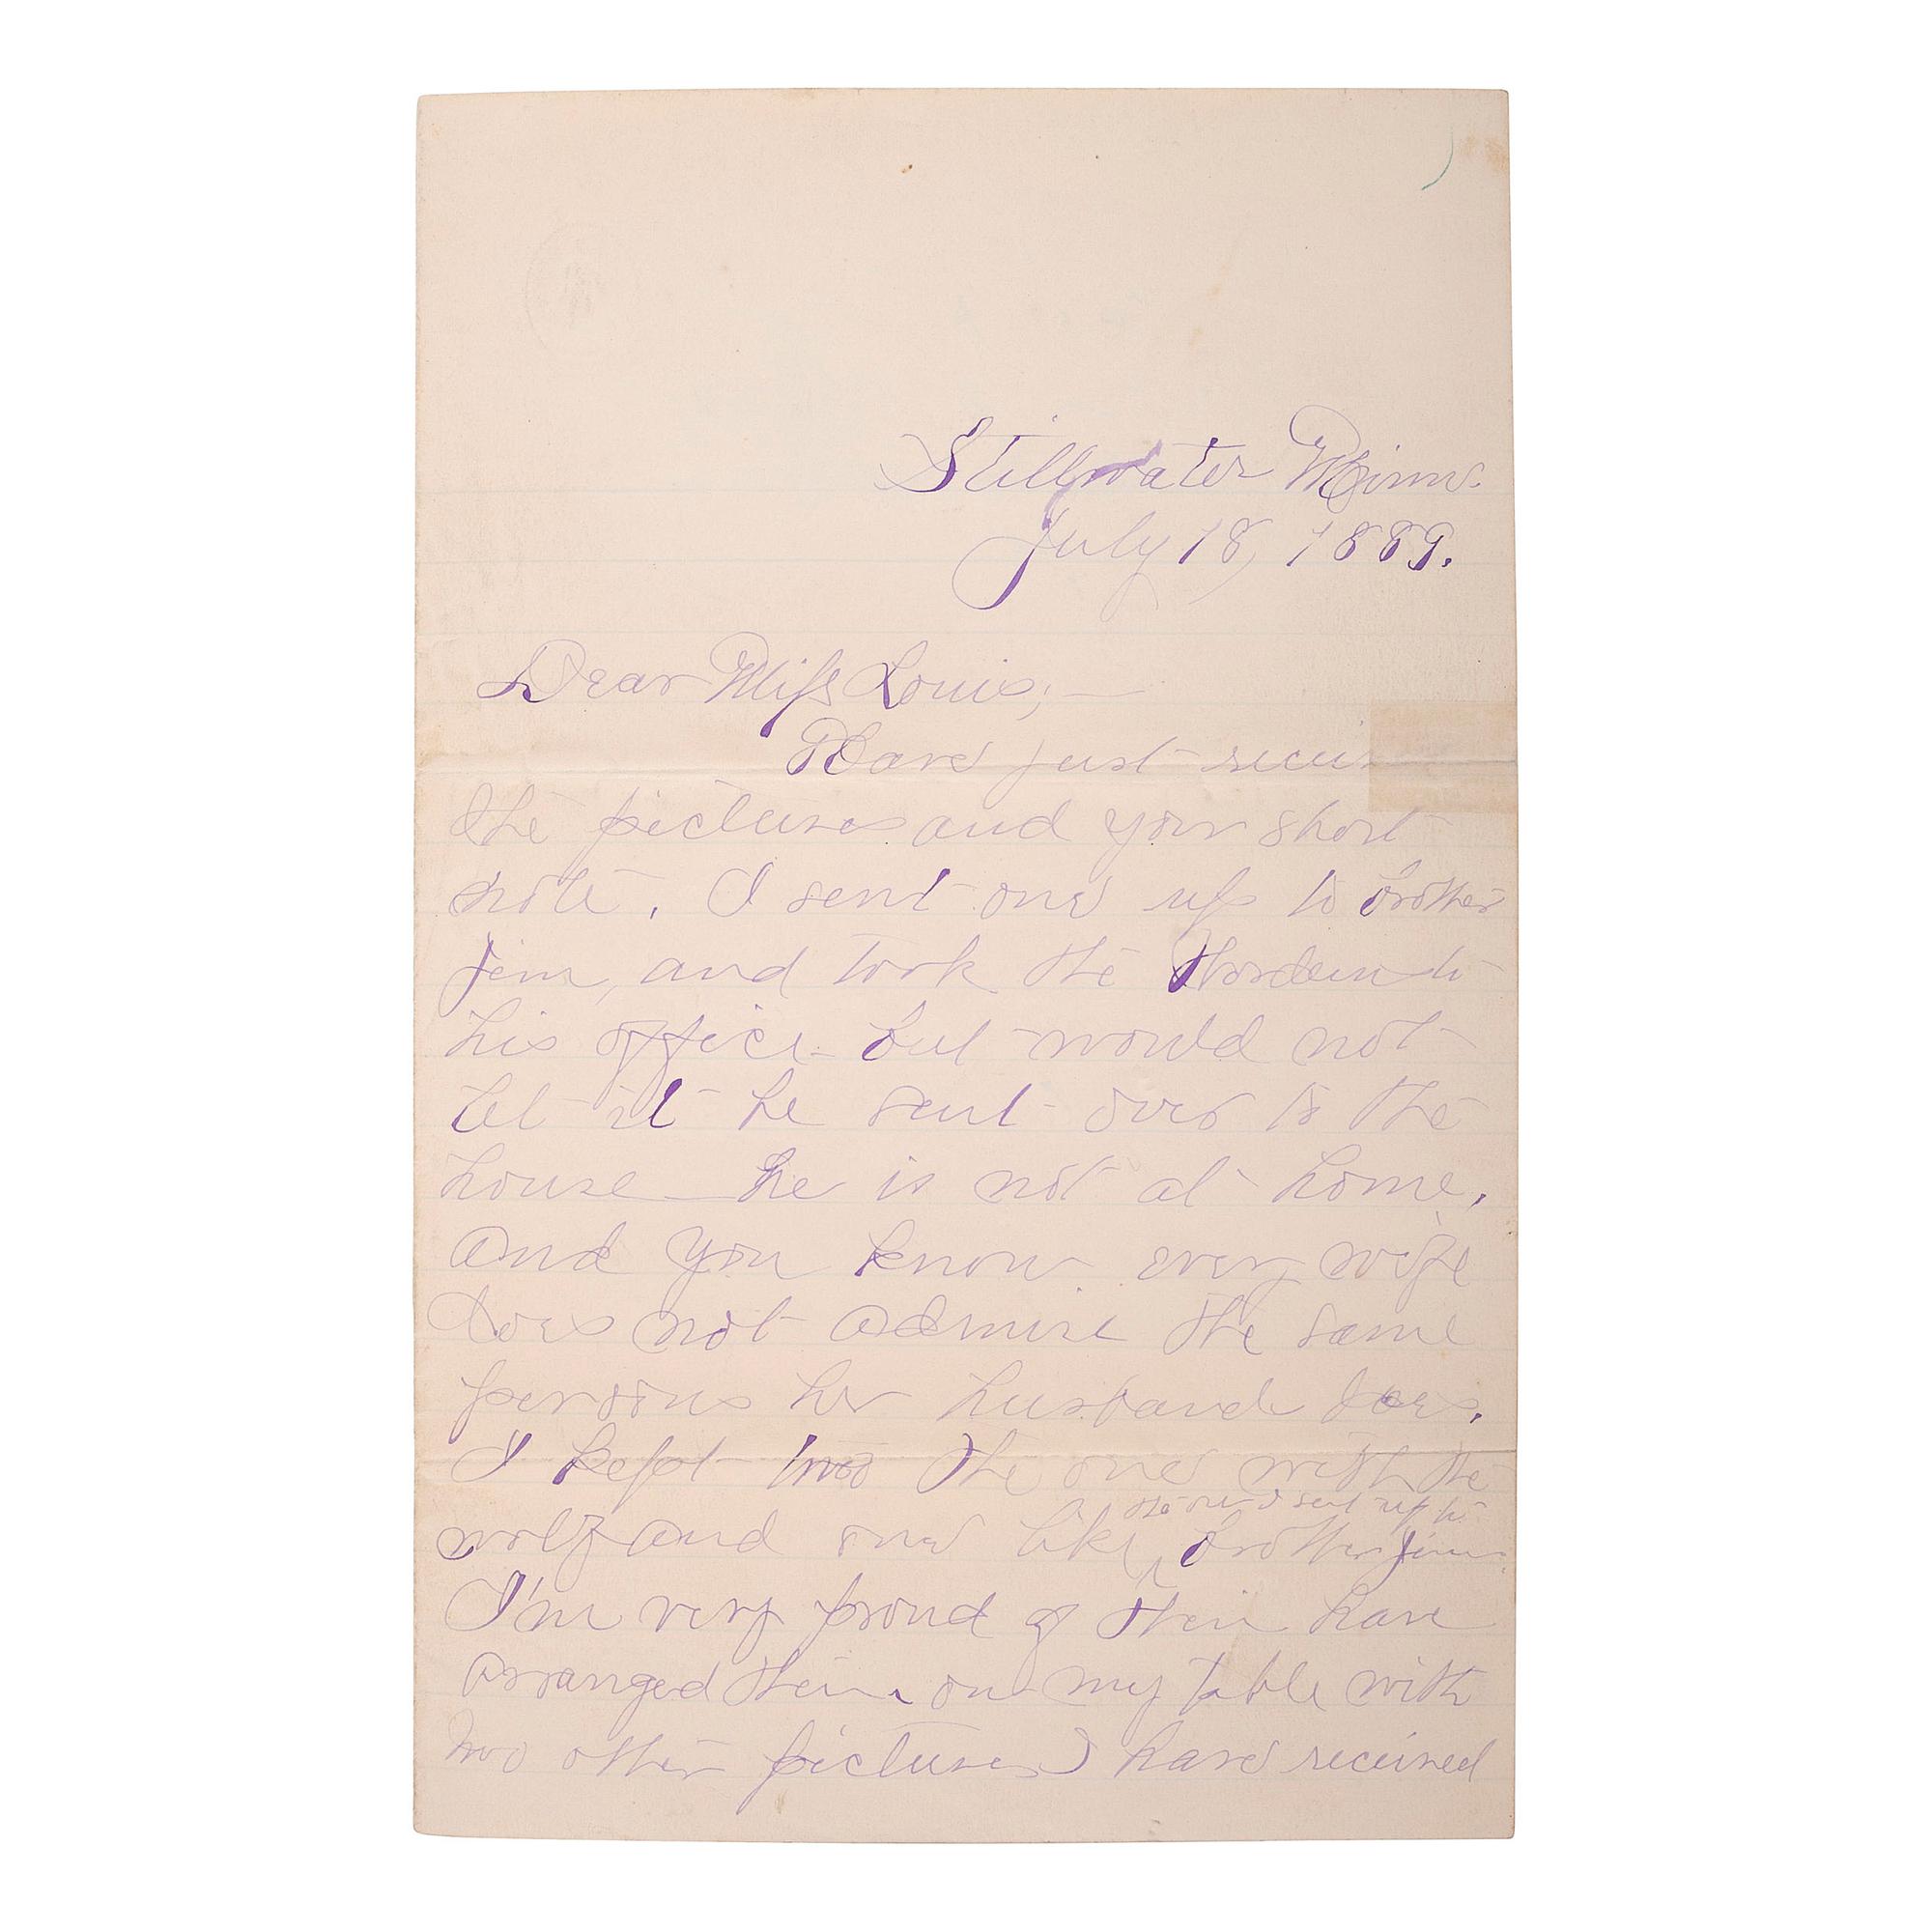 Stillwater Minn.
July 18, 1889.
Dear Miss Louis;—
Have just recei
the pictures and your short
note. I sent one up to brother
Jim, and took the to
his office but would not
let it be sent over to the
house — he is not at home,
and you know every wife
does not admire the same
persons her husband does.
I kept two the one with the
wolf and one like the one I sent up to brother Jim.
I'm very proud of them have
arranged them on my table with
two other pictures I have received